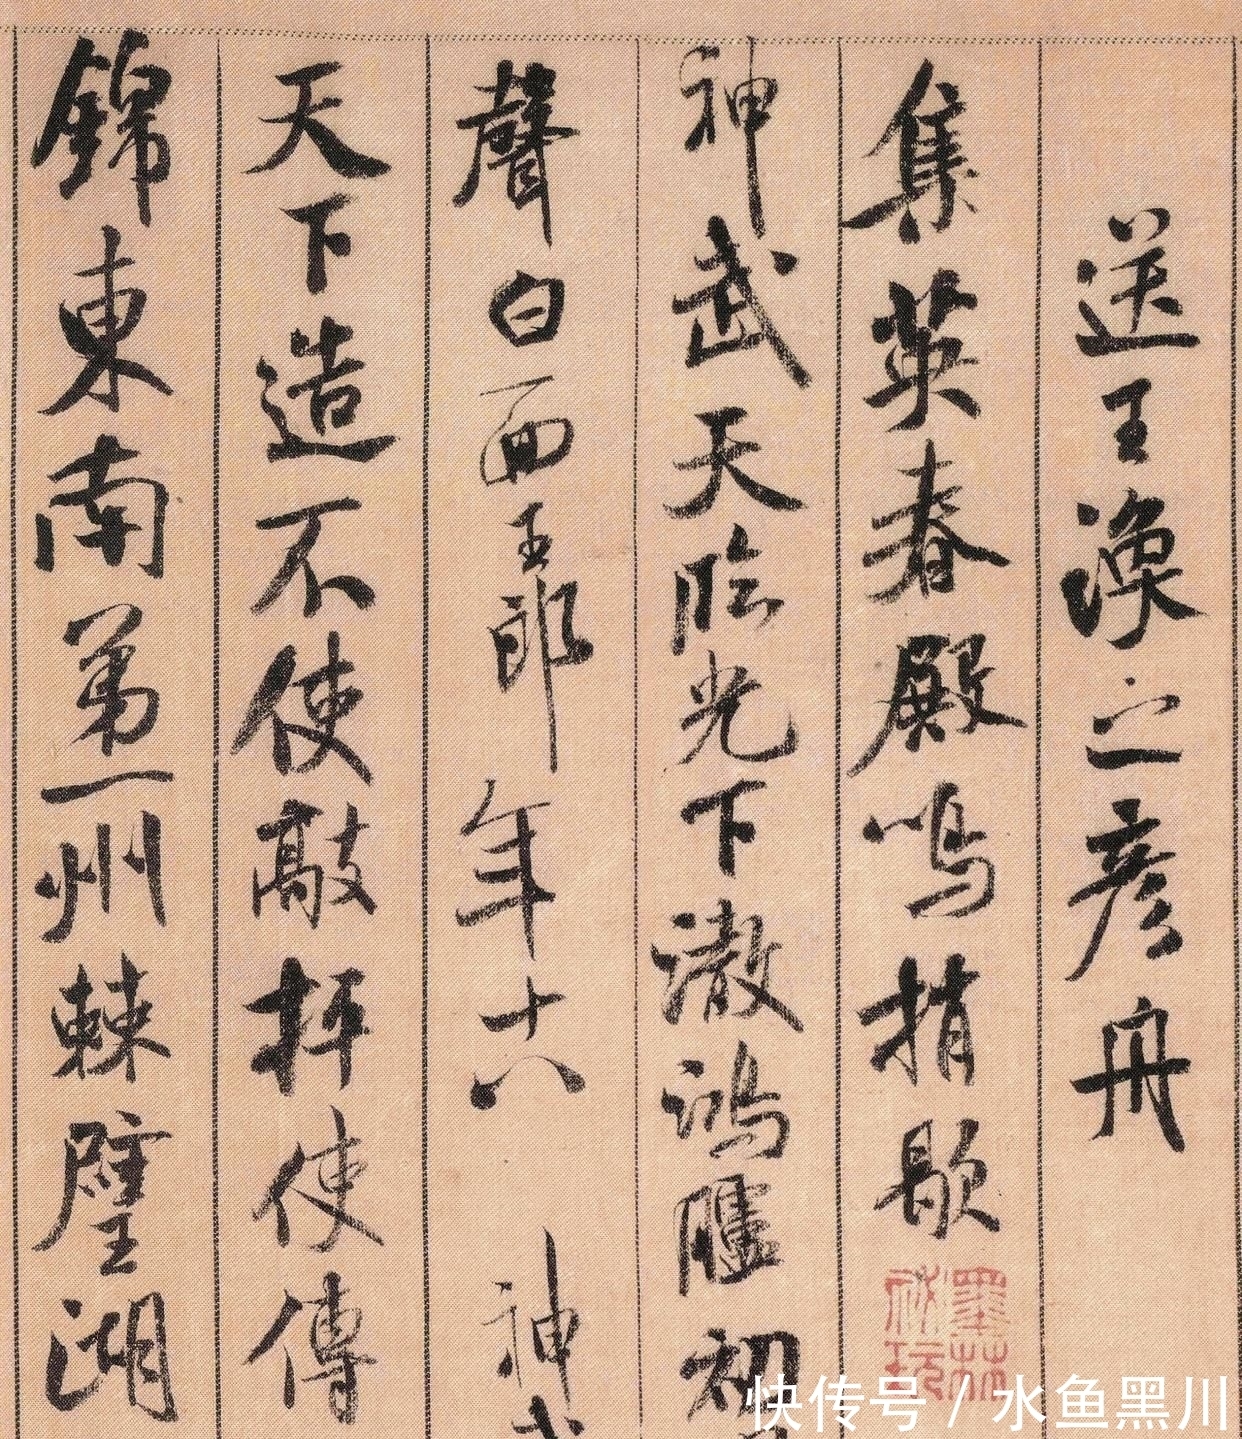 送王渙之彥舟
集英春殿鳴捎歇
神武天臨光下澈鴻臚初
聲白面王郎年十八神
天下造不使敲抨使傳
錦東南第一州棘璧湖
墨林祕玩
快传号 / 水鱼黑川